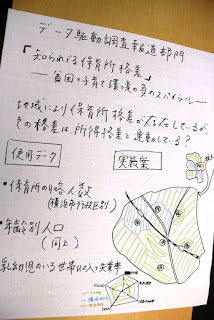 データ駆動調査報道部門
「知られざる保育所格差」
―貧困と子育て環境の負のスパイラル―
地域により保育所格差が存在しているが、
その格差は所得格差と連動している?
使用データ
実装案
・保育所の入所人数
(横浜市行政区別)
・年齢別人口
(同上)
乳幼児のいる世帯収入・失業率